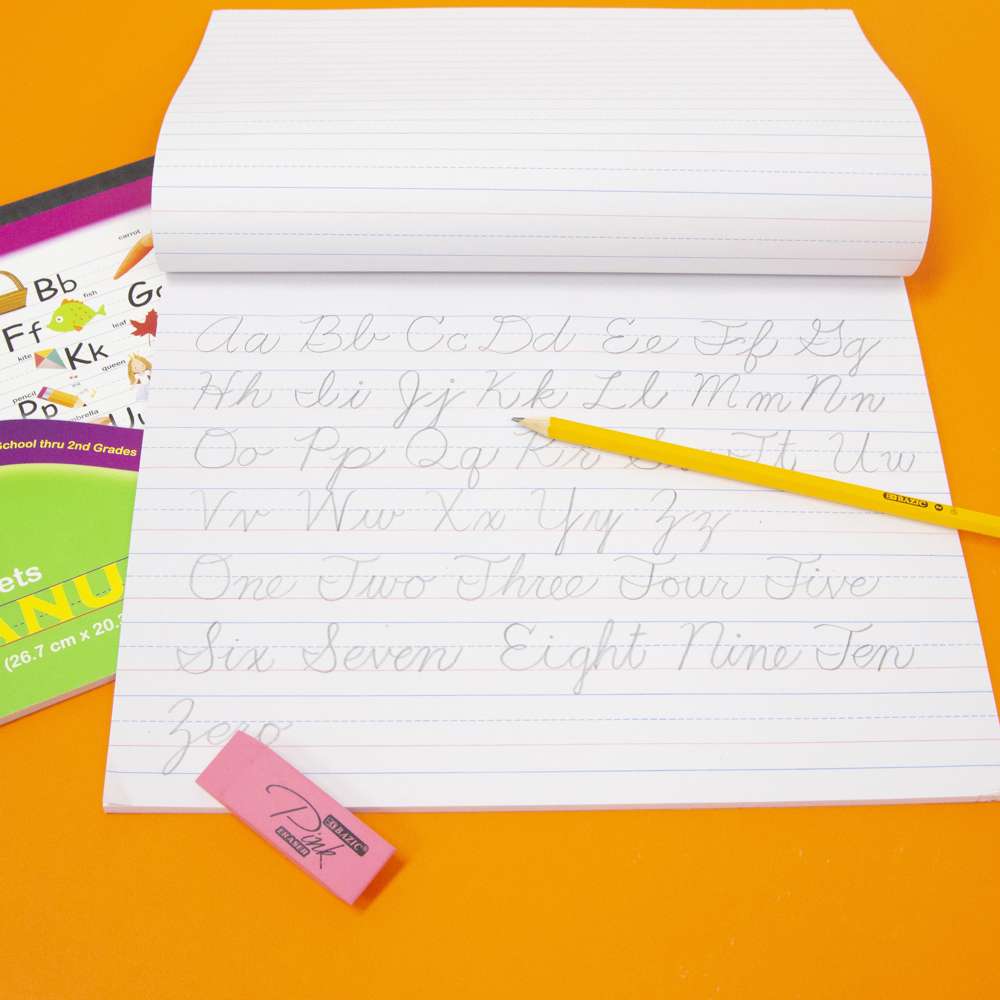 Aa Bb Cc Dd Ee Ff Gg
Hh Ii Jj Kk Ll Mm Nn
Oo Pp Qq Rr Ss Tt Uu
Vv Ww Xx Yy Zz
One Two Three Four Five
Six Seven Eight Nine Ten
Zero
BAZIC
BAZIC
Pink
ERASER
carrot
Bb
fish
Ff
leaf
kite
Kk
queen
pencil
Pp
School thru 2nd Grades
(26.7 cm x 20.3